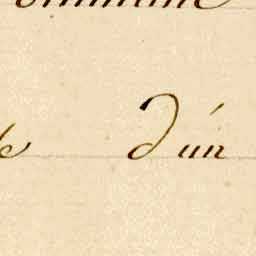 ommune
de Dun